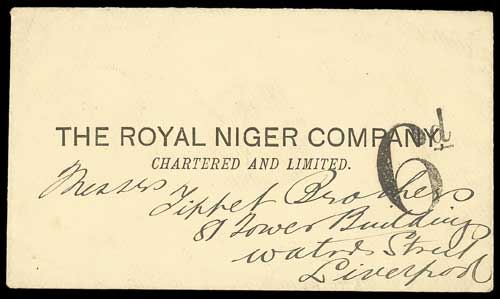 THE ROYAL NIGER COMPANY,
6d
CHARTERED AND LIMITED.
Messrs Tippet Brothers
81 Tower Building
Street
Liverpool